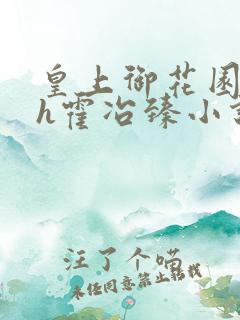 皇上御花园
h霍冶臻小说
汪了个喵
未经同意禁止转载